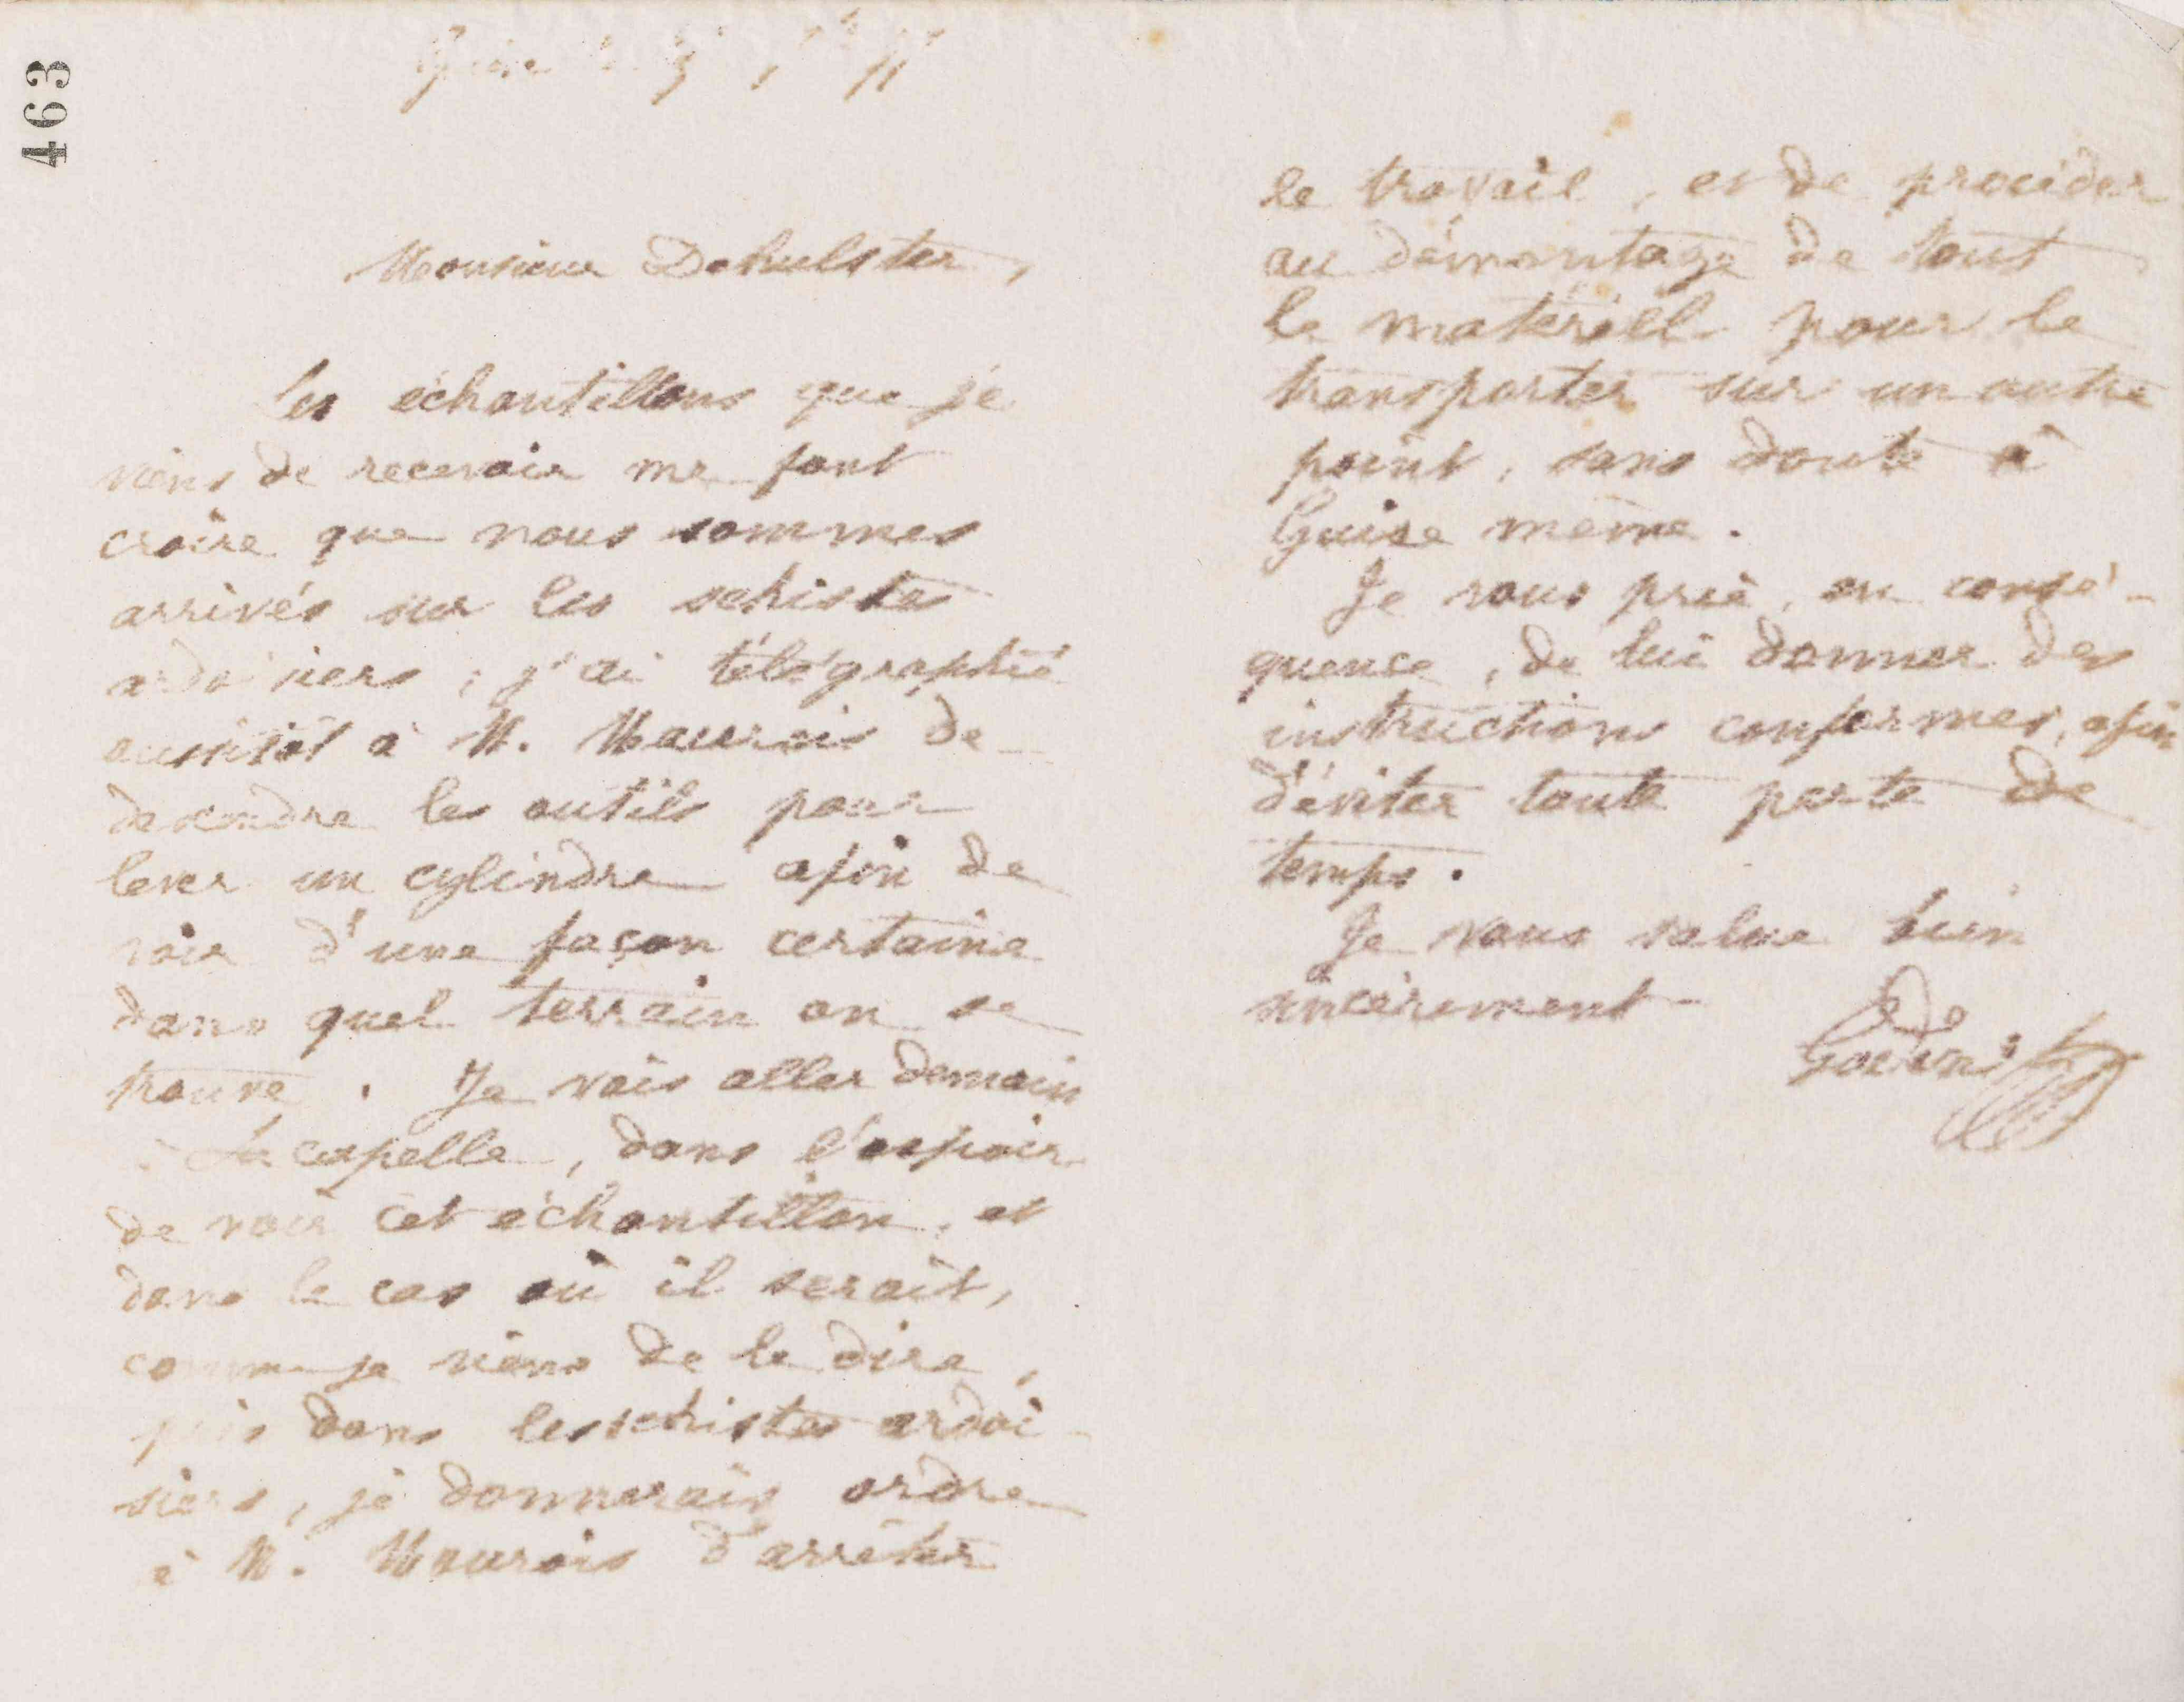 463
Guise
Monsieur Dehulster,
Les échantillons que je
viens de recevoir me font
croire que nous sommes
arrivés sur les schistes
ardoisiers ; j'ai télégraphié
aussitôt à M. Maurois de
descendre les outils pour
lever un cylindre afin de
voir d'une façon certaine
dans quel terrain on se
trouve. Je vais aller demain
à La capelle, dans l'espoir
de voir cet échantillon, et
dans le cas où il serait,
comme je viens de le dire,
pris dans les schistes ardoi-
siers, je donnerais ordre
à M. Maurois d'arrêter
le travail, et de procéder
au démontage de tout
le matériel pour le
transporter sur un autre
point, sans doute à
Guise même.
Je vous prie, en consé-
quence, de lui donner des
instructions conformes, afin
d'éviter toute perte de
temps.
Je vous salue bien
sincèrement
Godin